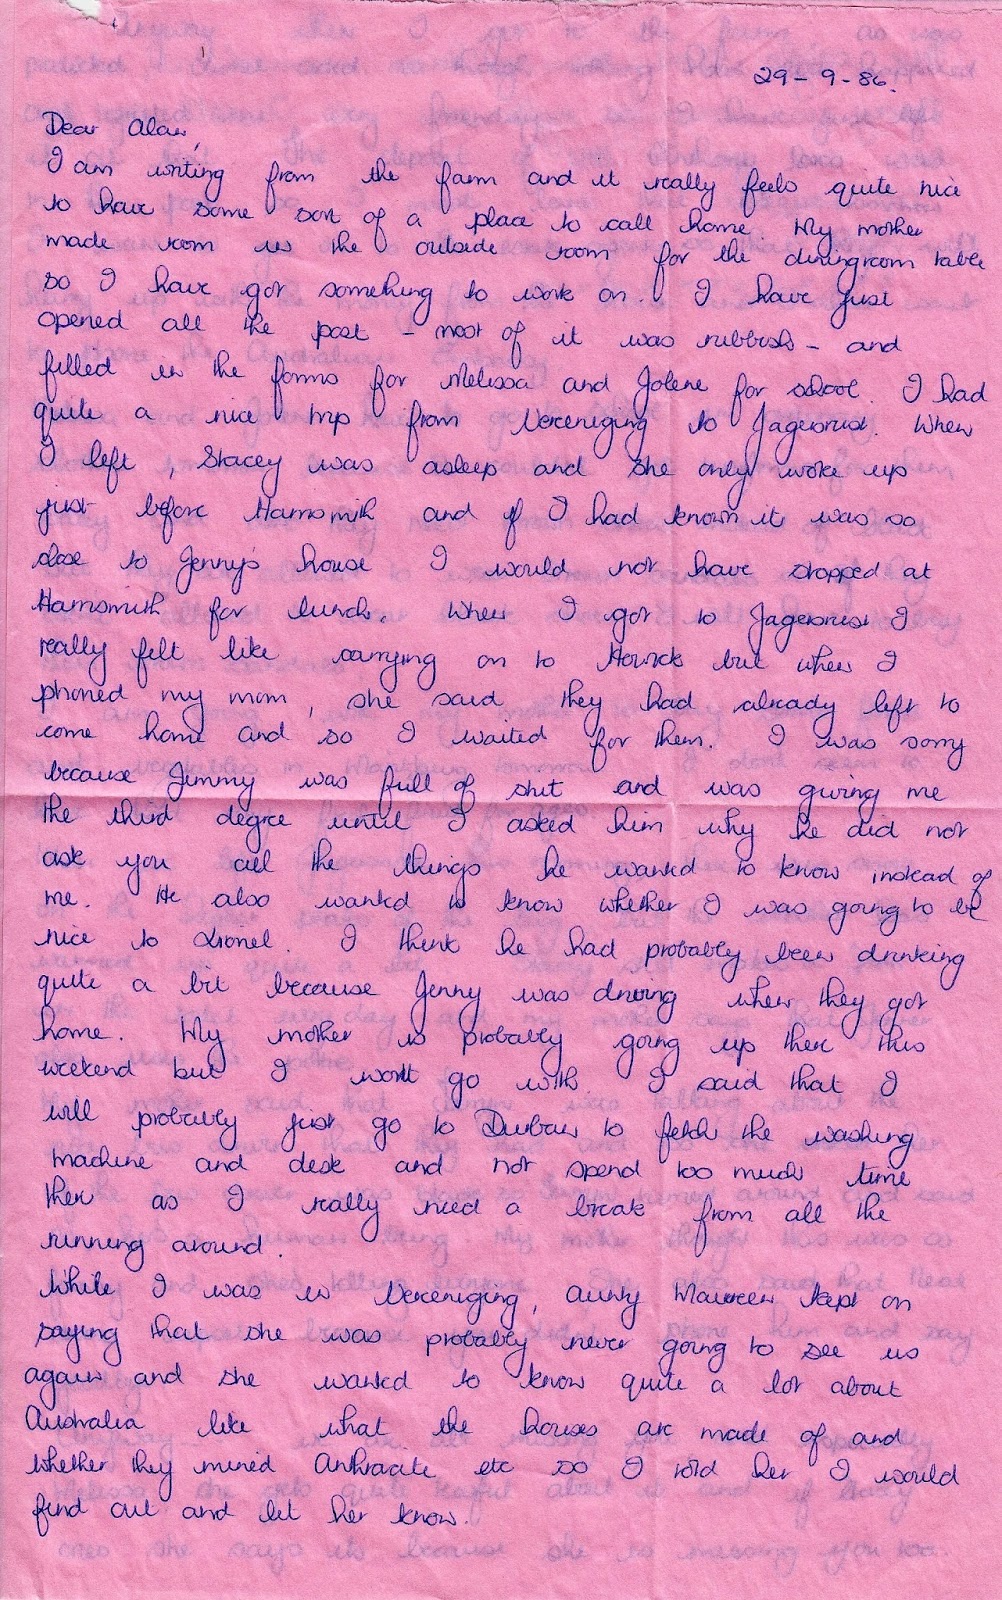 29-9-86.
Dear Alan,
I am writing from the farm and it really feels quite nice
to have some sort of a place to call home. My mother
made room in the outside room for the diningroom table
so I have got something to work on. I have just
opened all the post - most of it was rubbish - and
filled in the forms for Melissa and Jolene for school. I had
quite a nice trip from Vereeniging to Jagersrust. When
I left, Stacey was asleep and she only woke up
just before Harrismith and if I had known it was so
close to Jenny's house I would not have stopped at
Harrismith for lunch. When I got to Jagersrust I
really felt like carrying on to Howick but when I
phoned my mom, she said they had already left to
come home and so I waited for them. I was sorry
because Jimmy was full of shit and was giving me
the third degree until I asked him why he did not
ask you all the things he wanted to know instead of
me. He also wanted to know whether I was going to be
nice to Lionel. I think he had probably been drinking
quite a bit because Jenny was driving when they got
home. My mother is probably going up there this
weekend but I won't go with. I said that I
will probably just go to Durban to fetch the washing
machine and desk and not spend too much time
there as I really need a break from all the
running around.
While I was in Vereeniging, Aunty Maureen kept on
saying that she was probably never going to see us
again and she wanted to know quite a lot about
Australia like what the houses are made of and
whether they mined Anthracite etc so I told her I would
find out and let her know.